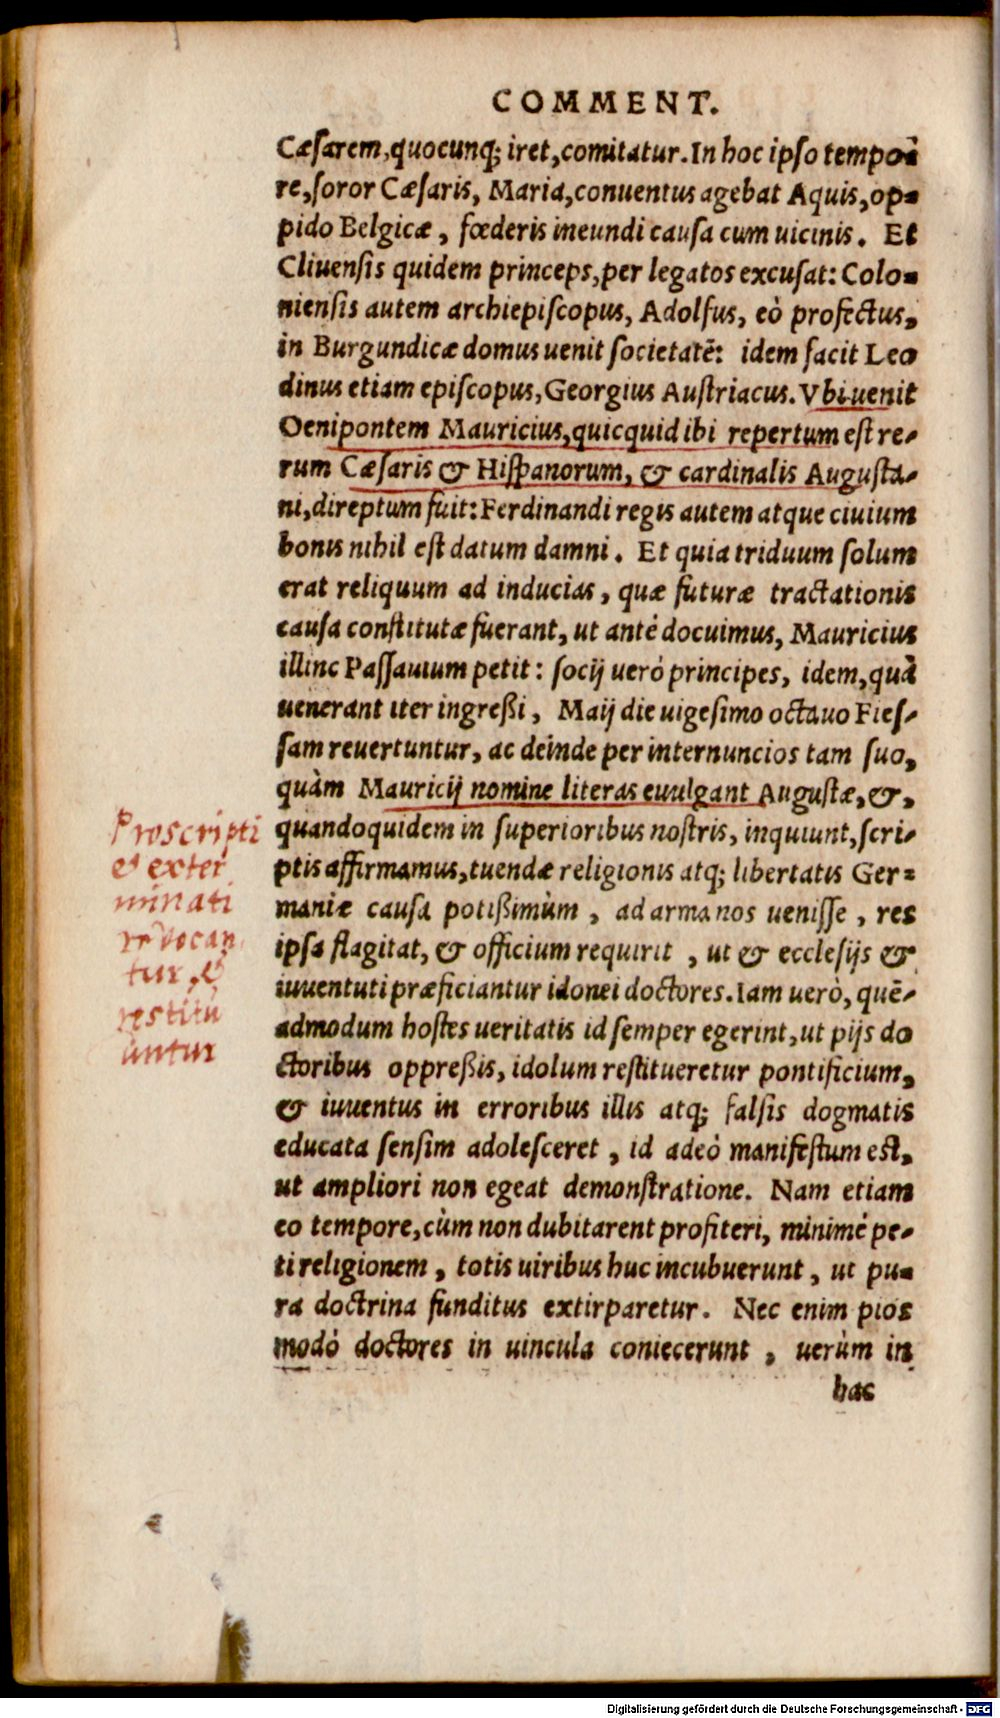 COMMENT.
Cæsarem, quocunq; iret, comitatur. In hoc ipso tempo-
re, soror Cæsaris, Maria, conuentus agebat Aquis, op-
pido Belgicæ, fœderis ineundi causa cum uicinis. Et
Cliuensis quidem princeps, per legatos excusat: Colo-
niensis autem archiepiscopus, Adolfus, eò profectus,
in Burgundicæ domus uenit societatē: idem facit Leo
dinus etiam episcopus, Georgius Austriacus. Vbi uenit
Oenipontem Mauricius, quicquid ibi repertum est re-
rum Cæsaris & Hispanorum, & cardinalis Augusta-
ni, direptum fuit: Ferdinandi regis autem atque ciuium
bonis nihil est datum damni. Et quia triduum solum
erat reliquum ad inducias, quæ futuræ tractationis
causa constitutæ fuerant, ut antè docuimus, Mauricius
illinc Passauium petit: socij uerò principes, idem, quà
uenerant iter ingreßi, Maij die uigesimo octauo Fies-
sam reuertuntur, ac deinde per internuncios tam suo,
quàm Mauricij nomine literas euulgant Augustæ, &,
quandoquidem in superioribus nostris, inquiunt, scri-
ptis affirmamus, tuendæ religionis atq; libertatis Ger-
maniæ causa potißimùm, ad arma nos uenisse, res
ipsa flagitat, & officium requirit, ut & ecclesijs &
iuuentuti præficiantur idonei doctores. Iam uerò, quē-
admodum hostes ueritatis id semper egerint, ut pijs do
ctoribus oppreßis, idolum restitueretur pontificium,
& iuuentus in erroribus illis atq; falsis dogmatis
educata sensim adolesceret, id adeò manifestum est,
ut ampliori non egeat demonstratione. Nam etiam
eo tempore, cùm non dubitarent profiteri, minimè pe-
ti religionem, totis uiribus huc incubuerunt, ut pu-
ra doctrina funditus extirparetur. Nec enim pios
modò doctores in uincula coniecerunt, uerùm in
hac
Proscripti
et exter
minati
revocan
tur, &
restitu
untur
Digitalisierung gefördert durch die Deutsche Forschungsgemeinschaft - DFG